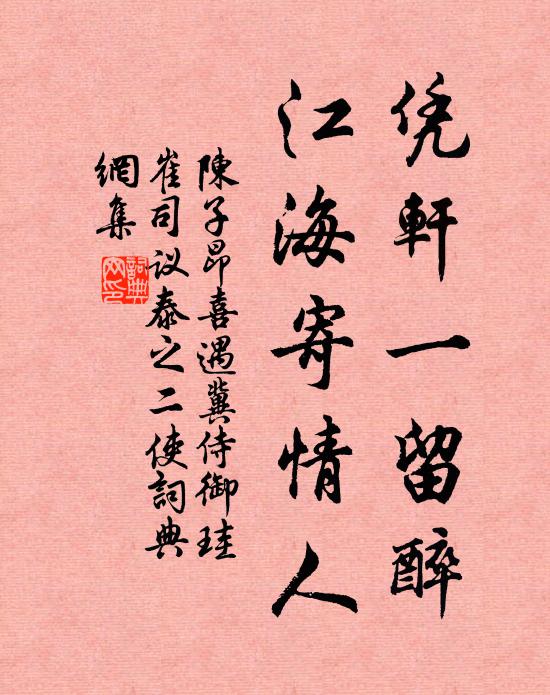 凭軒一留醉
江海寄情人
陳子昂喜遇冀侍御珪
崔司议泰之二使詞典
網集
詞典网印